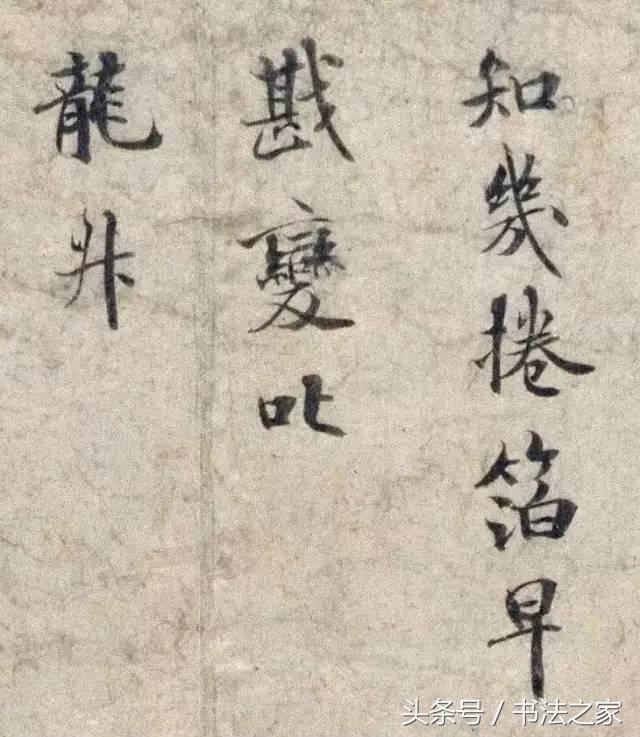 知幾捲箔早
戡變叱
龍升
头条号 / 书法之家